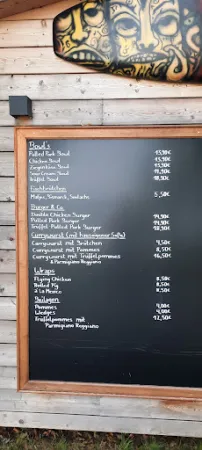 Bowls
Pulled Pork Bowl 15,90€
Chicken Bowl 15,90€
Ziegenkäse Bowl 15,90€
Sour Cream Bowl 14,90€
Trüffel Bowl 18,90€
Fischbrötchen
Matjes, Bismarck, Seelachs 5,50€
Burger & Co.
Double Chicken Burger 14,90€
Pulled Pork Burger 14,90€
Trüffel Pulled Pork Burger 18,90€
Currywurst (mit hausgemachter Soße)
Currywurst mit Brötchen 4,50€
Currywurst mit Pommes 8,50€
Currywurst mit Trüffelpommes 16,50€
& Parmigiano Reggiano
Wraps
Flying Chicken 8,50€
Rolled Pig 8,50€
a La Mexico 8,50€
Beilagen
Pommes 4,00€
Wedges 4,00€
Trüffelpommes mit 12,50€
Parmigiano Reggiano